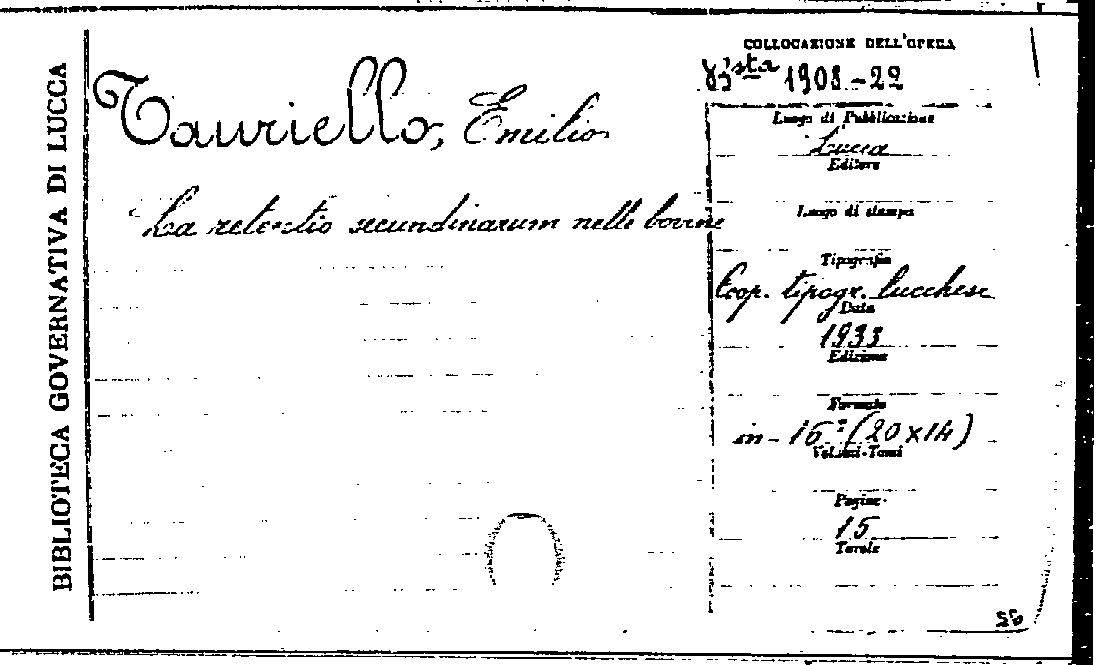 BIBLIOTECA GOVERNATIVA DI LUCCA
Tauriello, Emilio
La retentio secundinarum nelle bovine
COLLOCAZIONE DELL'OPERA
Bˢᵗᵃ 1908-22
Luogo di Pubblicazione
Lucca
Editore
Luogo di stampa
Tipografia
Coop. tipogr. lucchese
Data
1933
Edizione
Formato
in-16º (20x14)
Volumi-Tomi
Pagine
15
Tavole